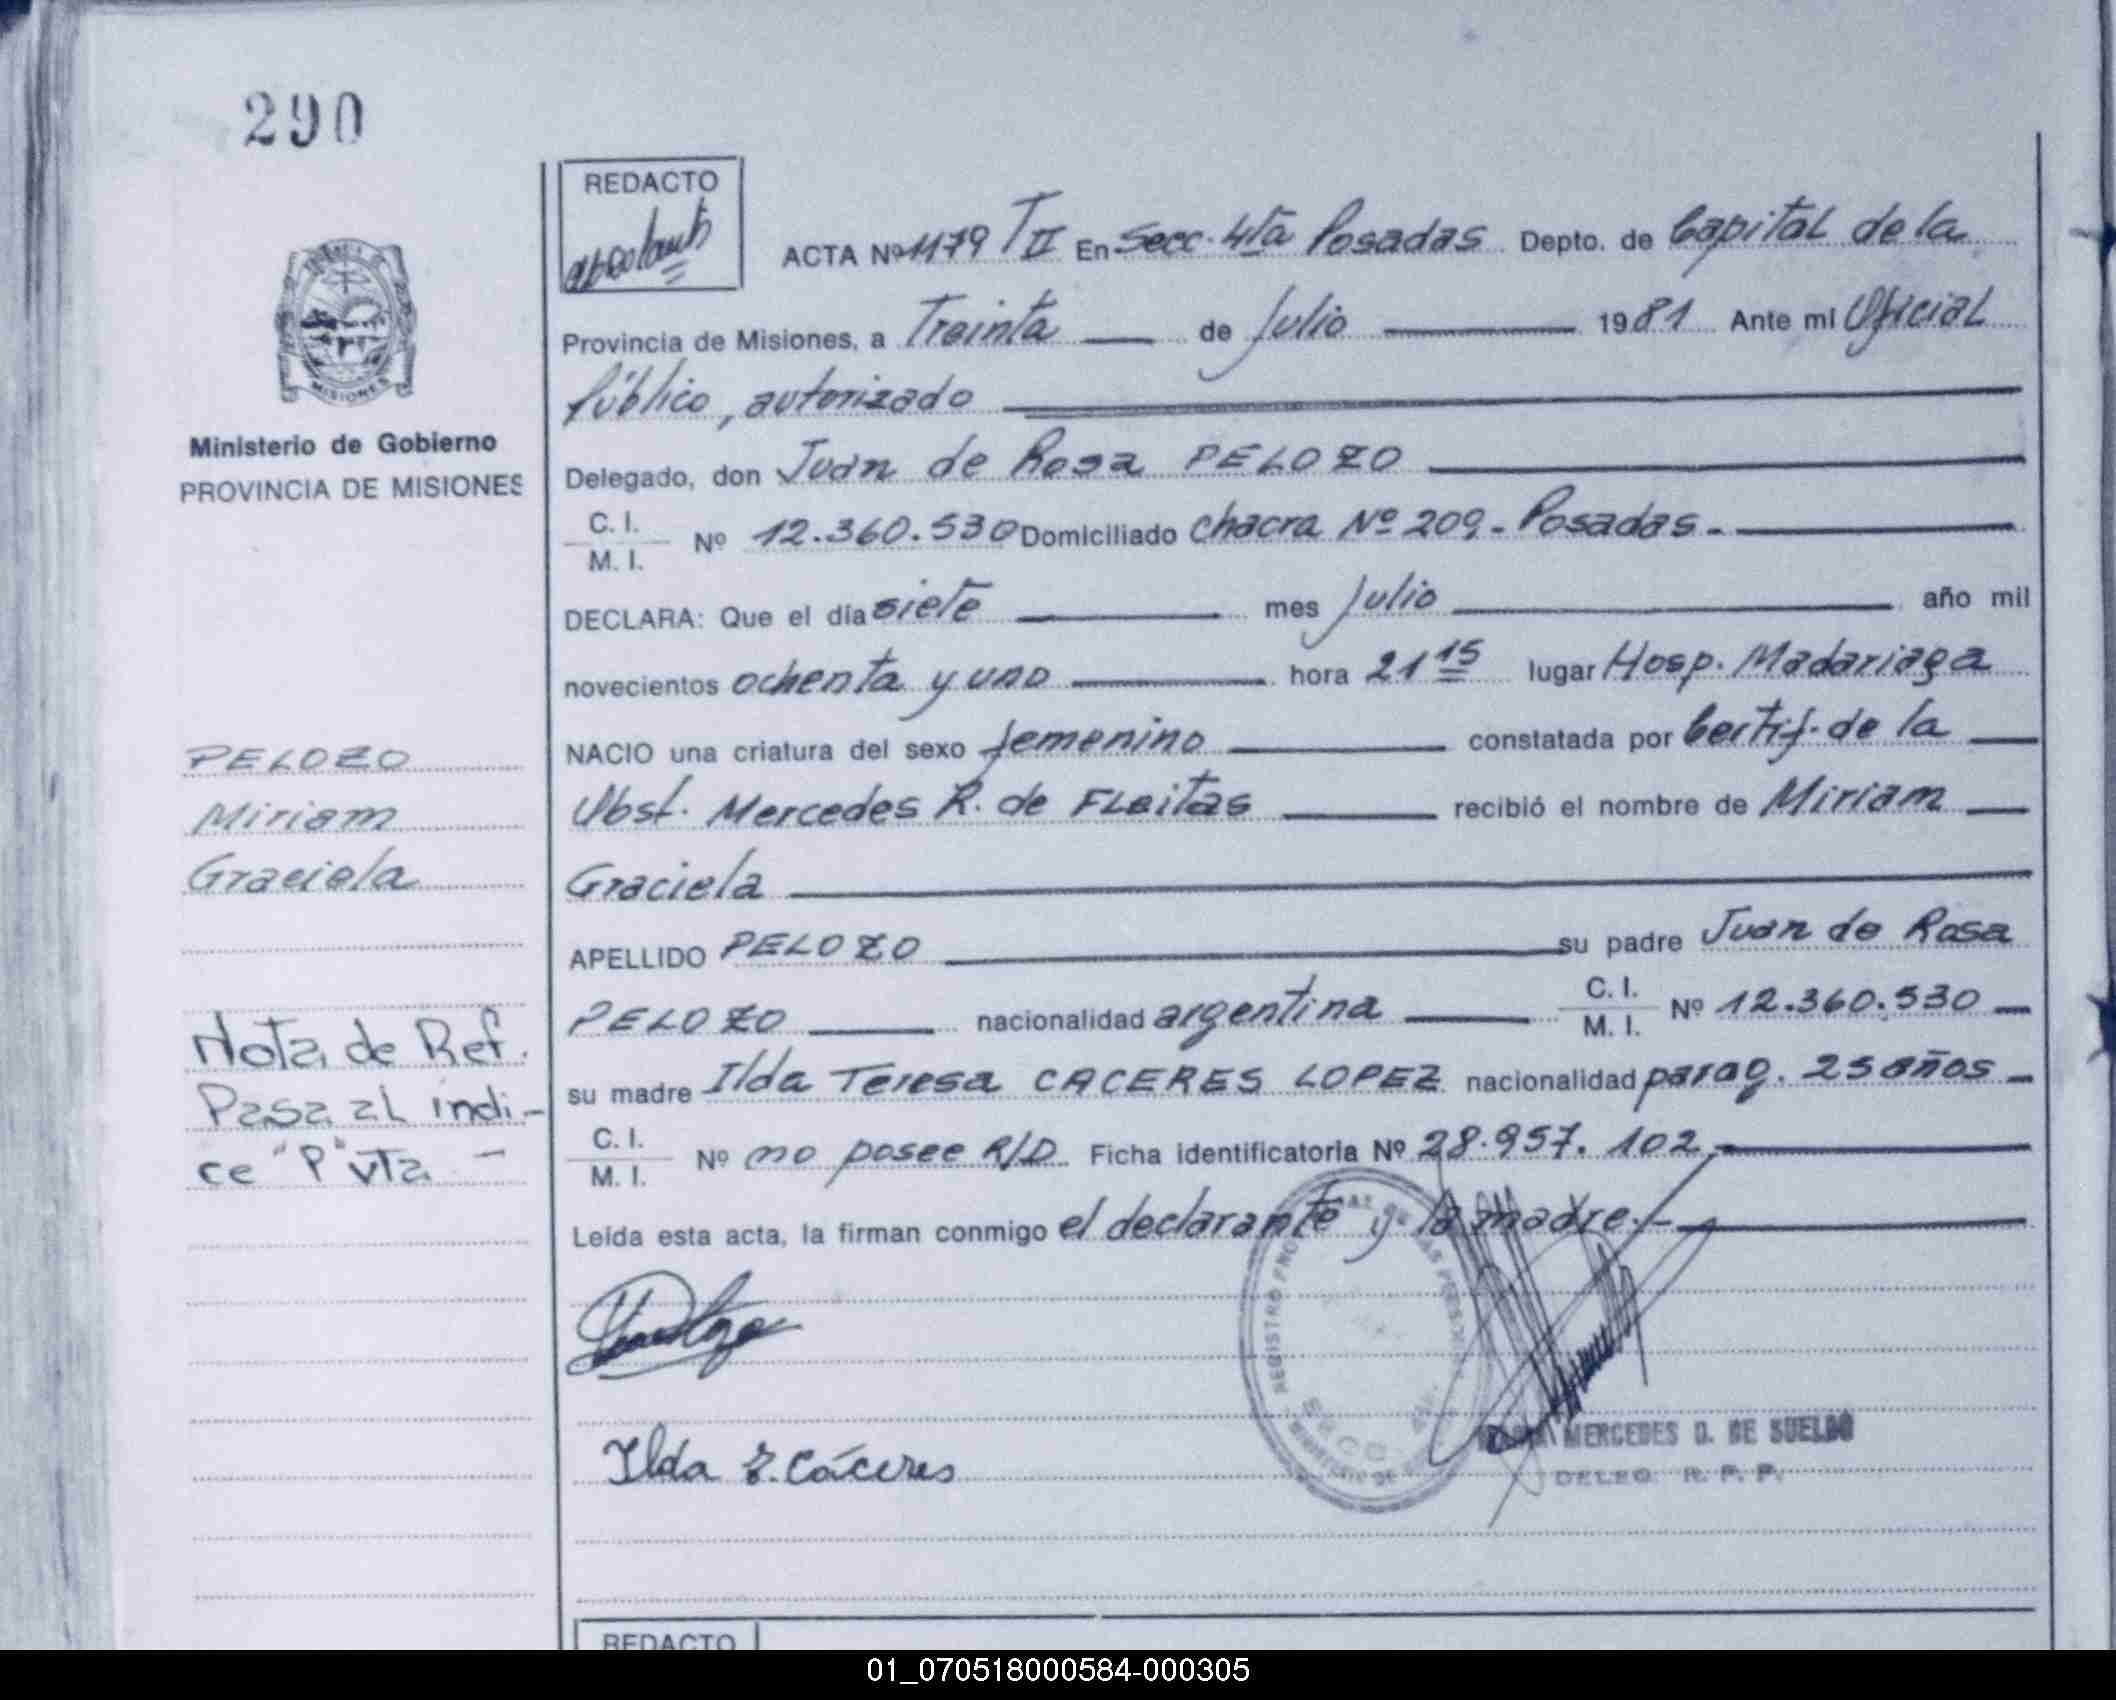 290
REDACTO
ACTA Nº 1179 T II En Secc. 4ta Posadas Depto. de Capital de la
Provincia de Misiones, a Treinta de Julio 1981 Ante mi Oficial
Público, autorizado
Delegado, don Juan de Rosa PELOZO
C. I.
M. I. Nº 12.360.530 Domiciliado chacra Nº 209.- Posadas.-
DECLARA: Que el día siete mes Julio año mil
novecientos ochenta y uno hora 21 15 lugar Hosp. Madariaga
NACIO una criatura del sexo femenino constatada por Certif. de la
Obst. Mercedes R. de FLeitas recibió el nombre de Miriam
Graciela
APELLIDO PELOZO su padre Juan de Rosa
PELOZO nacionalidad argentina C. I. M. I. Nº 12.360.530
su madre Ilda Teresa CACERES LOPEZ nacionalidad parag. 25 años
C. I.
M. I. Nº no posee R/D. Ficha identificatoria Nº 28.957.102
Leída esta acta, la firman conmigo el declarante y la madre.-
Ilda T. Cáceres
MERCEDES D. DE SUELDO
DELEG. R. P. P.
MISIONES
Ministerio de Gobierno
PROVINCIA DE MISIONES
PELOZO
Miriam
Graciela
Nota de Ref.
Pasa al indi-
ce "P" vta -
REGISTRO
REDACTO
01_070518000584-000305